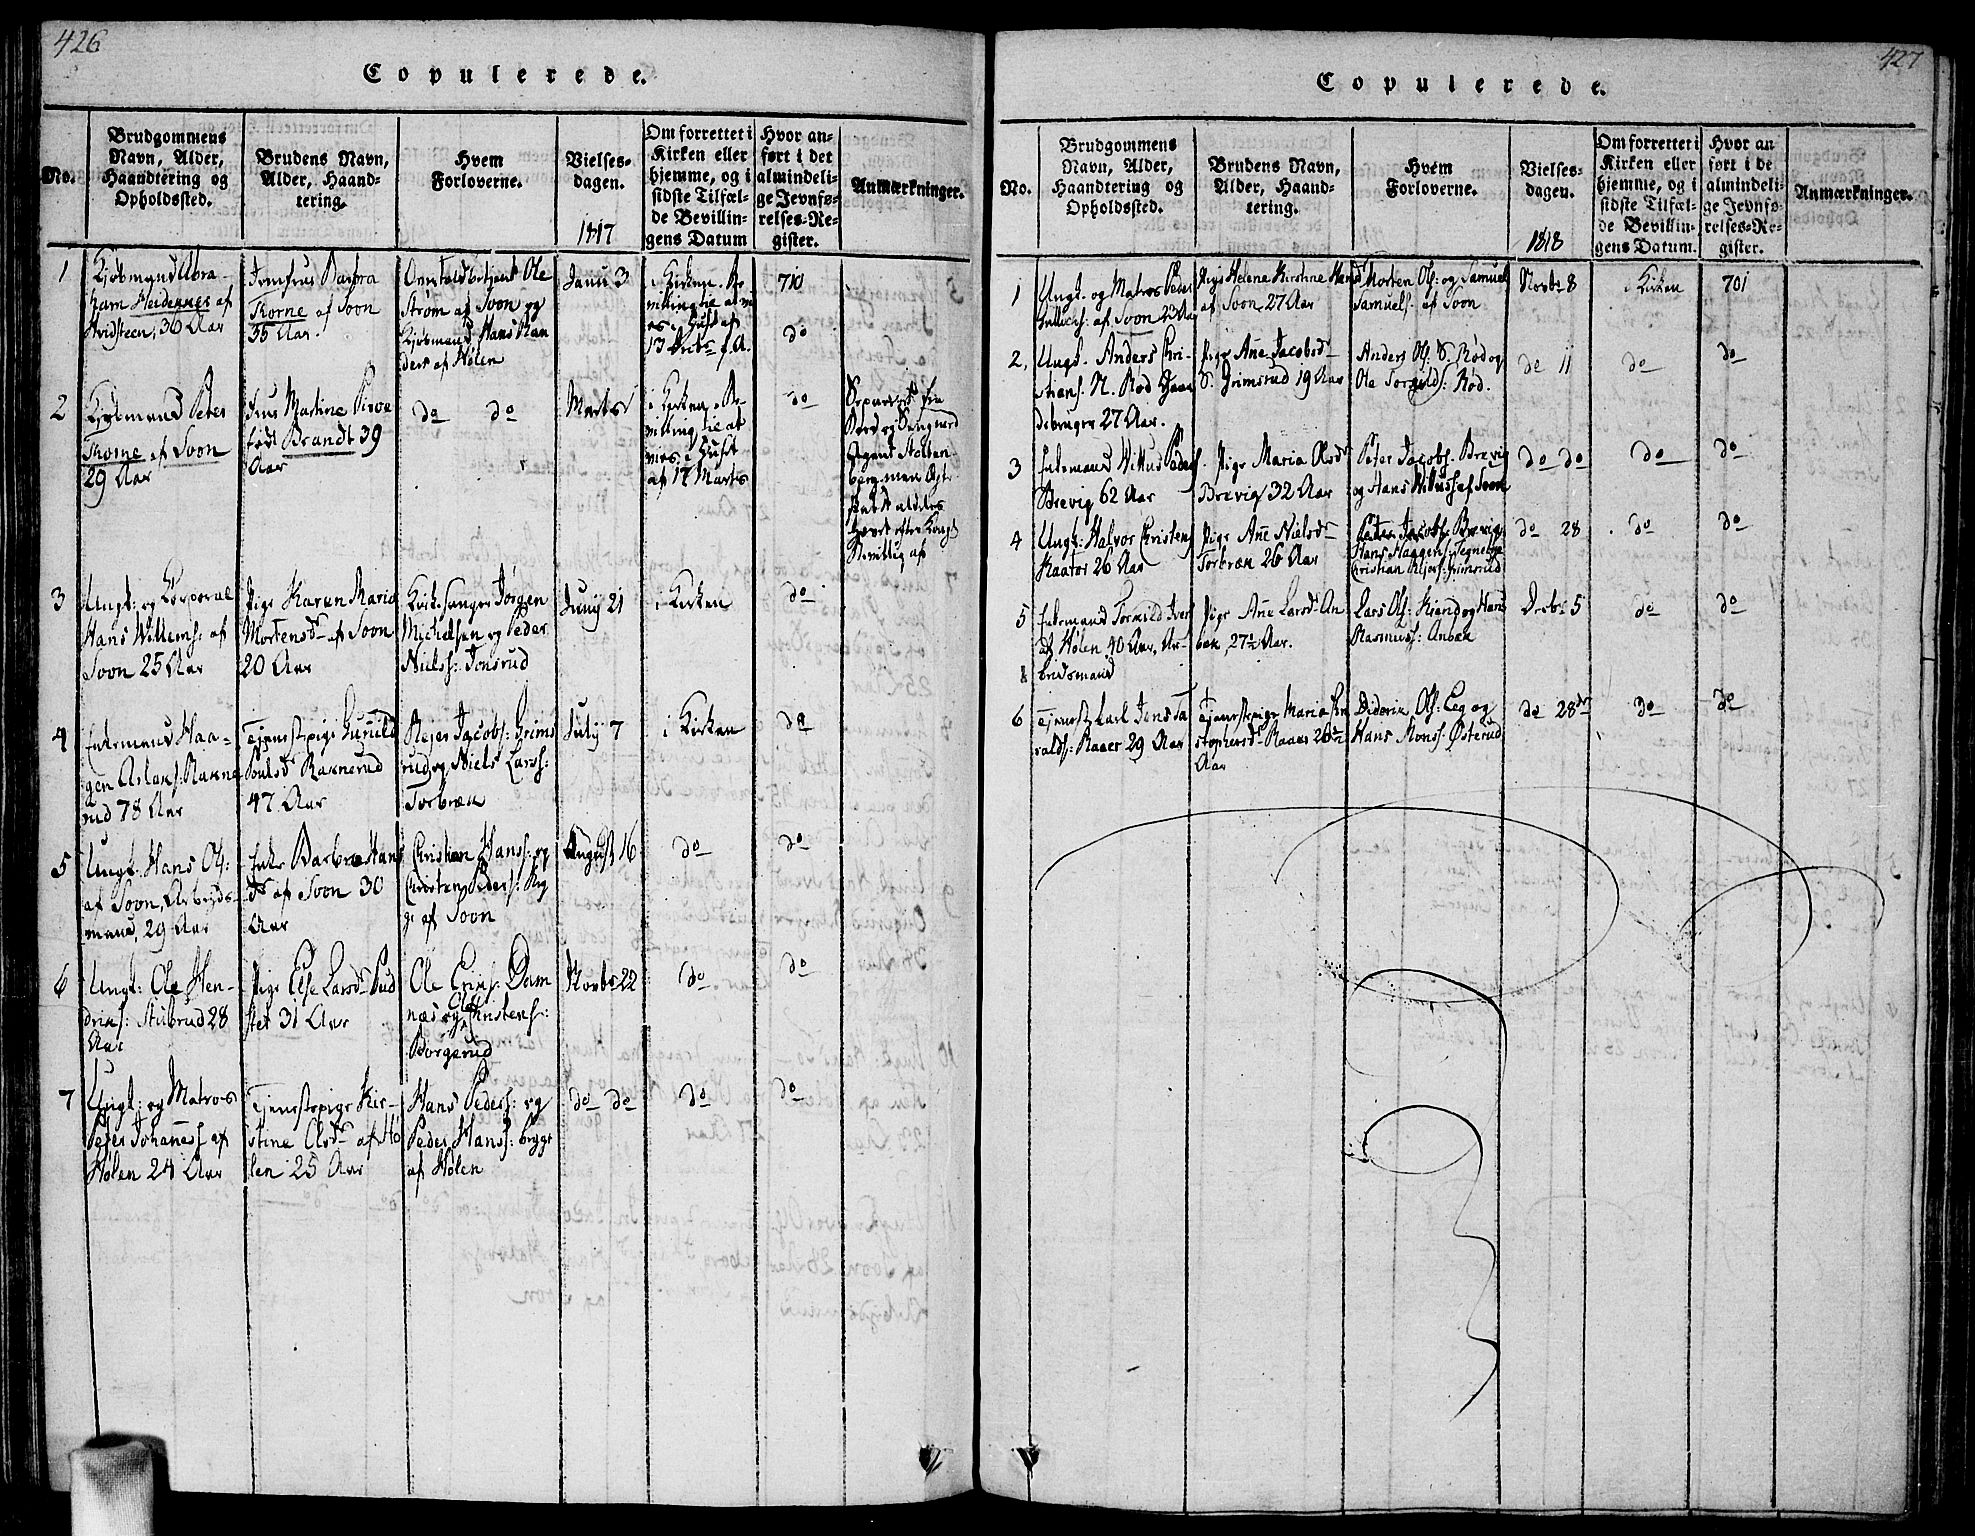 426
Copulerede.
No.
Brudgommens
Navn, Alder,
Haandtering og
Opholdssted.
Brudens Navn,
Alder, Haand-
tering.
Hvem
Forloverne.
Vielses-
dagen.
1817
Om forrettet i
Kirken eller
hjemme, og i
sidste Tilfæl-
de Bevillin-
gens Datum
Hvor an-
ført i det
almindeli-
ge Jevnfø-
relses-Re-
gister.
Anmærkninger.
1
Kjøbmand Abra-
ham Heidenner af
Hvidsteen, 36 Aar
Jomfrue Barbra
Thorne af Soon
35 Aar.
Ole
Strøm af Soon og
Kjøbmand Hans
af Hølen
Janu 3
i Kirken.
13 f. A.
710
do
2
Kjøbmand Peter
Thorne af Soon
29 Aar
Frue Martine
født Brandt 39
Aar
do do
Marts
i Kirken,
af 17 Marts
do
3
Ungk: og Corporal
Hans Willums: af
Soon 25 Aar
Pige Karen Maria
Mortensdr af Soon
20 Aar
Kirkesanger Jørgen
Michelsen og Peder
Nielss: Jonsrud
Junij 21
i Kirken
do
4
Enkemand Haa-
gen
rud 78 Aar
Tjenestpige Gunild
Poulsdr Ramerud
47 Aar
Rejer Jacobs: Grims
rud og Niels Larss:
Torbræn
Julij 7
i Kirken
do
5
Ungk. Hans Ols:
af Soon, Arbejds-
mand, 29 Aar
Enke Barbra Hans
dr af Soon 30
Aar
Christian Hanss: og
Christen Peders:
af Soon
August 16
do
do
6
Ungk: Ole Hen-
driks: Stubrud 28
Aar
Pige Else Larsdr
31 Aar
Ole Eriks: Dam
næs og Ole Kristens:
Borgerud
Novbr 22
do
do
7
Ungk: og Matros
Peter Johaness: af
Hølen 24 Aar
Tjenestepige Kir-
stine Olsdr af Hø
len 25 Aar
Hans Peders: og
Peder Hanss: begge
af Hølen
do do
do
do
427
Copulerede.
No.
Brudgommens
Navn, Alder,
Haandtering og
Opholdssted.
Brudens Navn,
Alder, Haand-
tering.
Hvem
Forloverne.
Vielses-
dagen.
1818
Om forrettet i
Kirken eller
hjemme, og i
sidste Tilfæl-
de Bevillin-
gens Datum.
Hvor an
ført i de
almindeli-
ge Jevnfø-
relses-Re-
gister.
Anmærkninger.
1
Ungk. og Matros Peder
af Soon 23 Aar
Pige Helene Kirstine Hansdr
af Soon 27 Aar
Morten Ols: og Samuel
Samuels: af Soon
Novbr 8
i Kirken
701
2,
Ungk. Anders Chri-
stians. N. Rød Gaar
debruger 27 Aar.
Pige Ane Jacobsdr
S. Grimsrud 19 Aar
Anders Ols: S. Rød og
Ole Torgilds: Rød.
do 11
do
do
3
Enkemand Peders
Brevig 62 Aar
Pige Maria Olsdr
Brevig 32 Aar
Peter Jacobs: Brevig
og Hans af Soon
do do
do
do
4
Ungk: Halvor Christens
Kaatør 26 Aar
Pige Ane Nielsdr
Torbræn 26 Aar
Peter Jacobs: Brevig
Hans Haagens: Tegneby
Christian Rejers: Grimsrud
do 28
do
do
5
Enkemand Tormild Ivers
af Hølen 40 Aar, Ar-
beidsmand
Pige Ane Larsdr An
bæk, 27½ Aar.
Lars Ols: Kiend og Hans
Rasmuss: Anbæk
Decbr 5
do
do
6
Tjenestkarl Jens Ta
ralds: Raaer 29 Aar
Tjenestepige Maria Chri
stophersdr Raaer 26½
Aar
Diderik Ols: Eeg og
Hans Mons: Østerud
do 28de
do
do